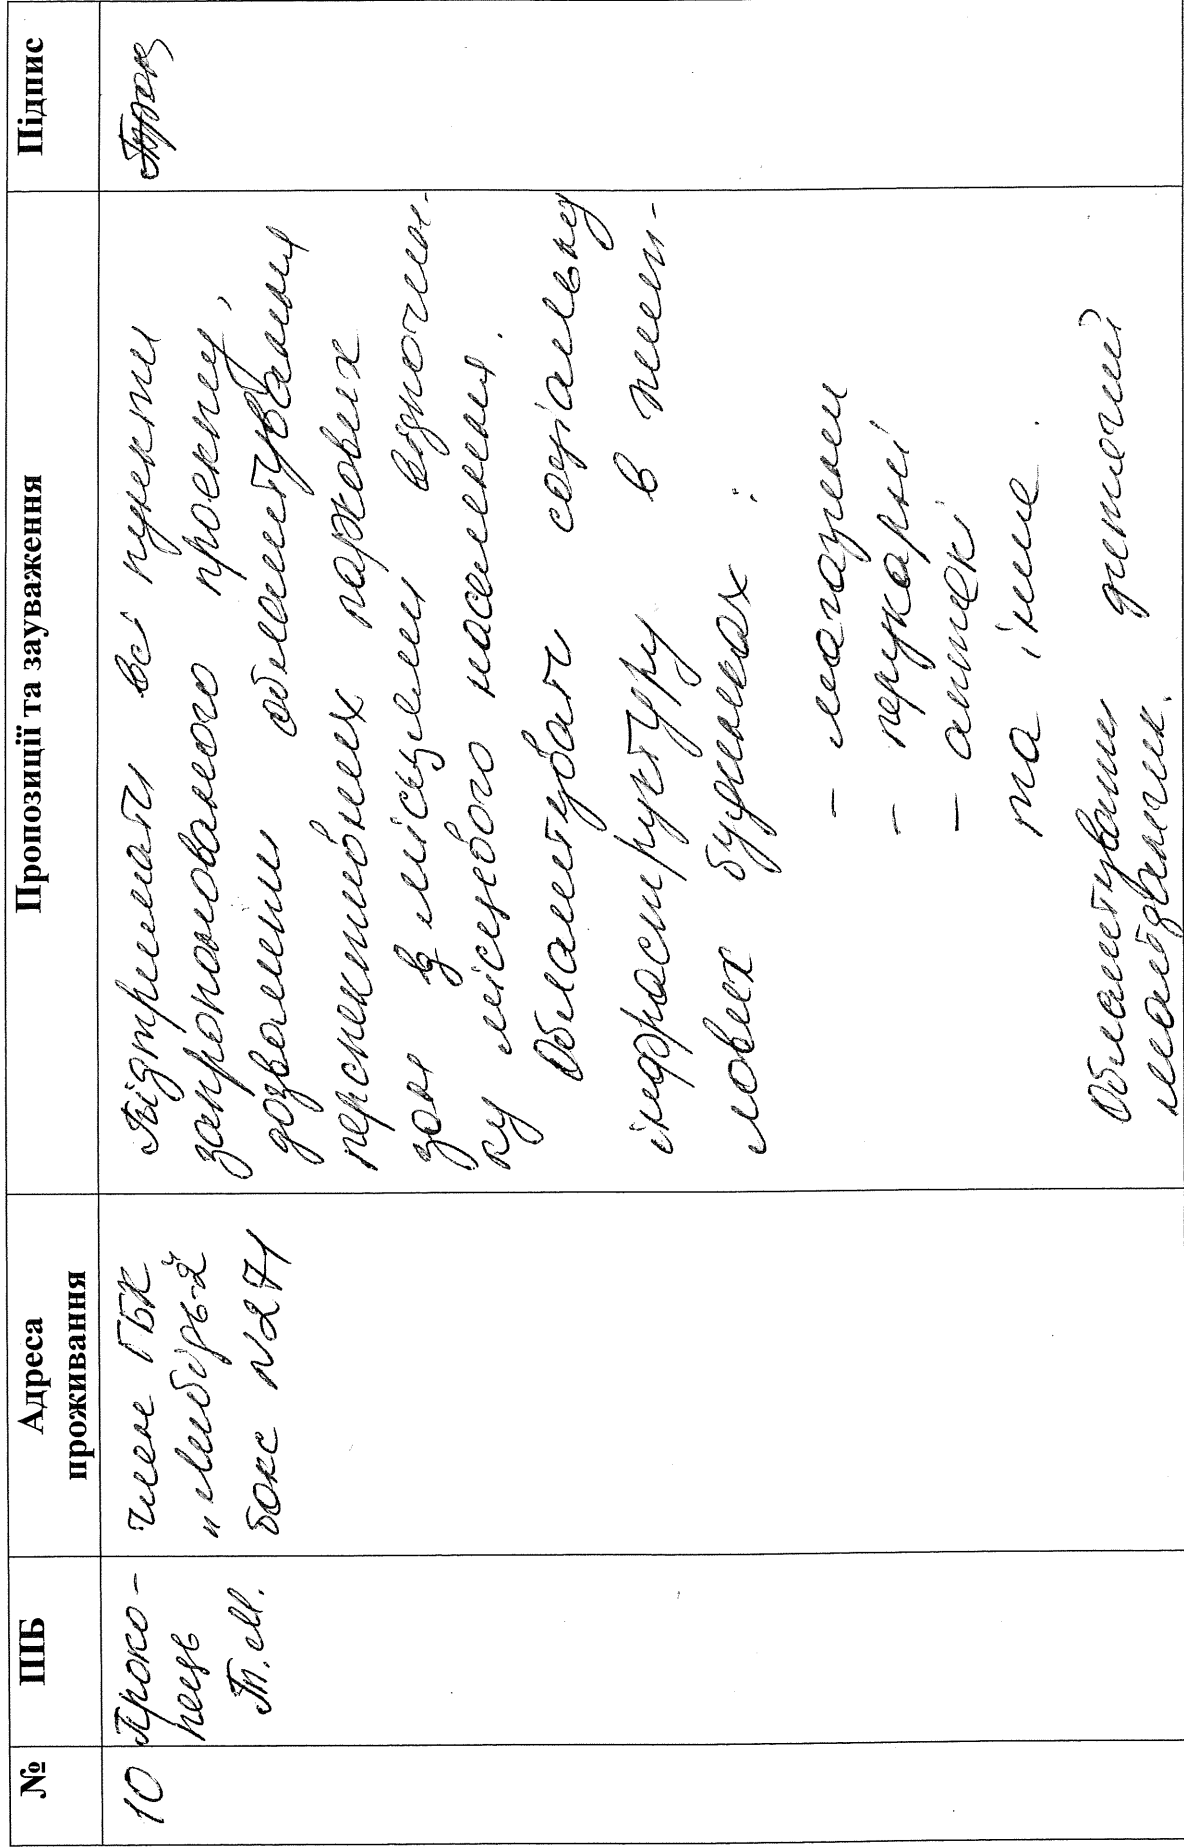 №
ПІБ
Адреса
проживання
Пропозиції та зауваження
Підпис
10
Проко-
пець
Т.М.
член ГБК
"Либідь-2
бокс №271
Підтримати всі пункти
запропонованого проекту,
дозволити облаштування
перспективних паркових
зон з місцями відпочин-
ку місцевого населення.
Облаштувати соціальну
інфраструктуру в жит-
лових будинках :
- магазини
- перукарні
- аптекі
та інше.
Облаштувати дитячий
майданчик.